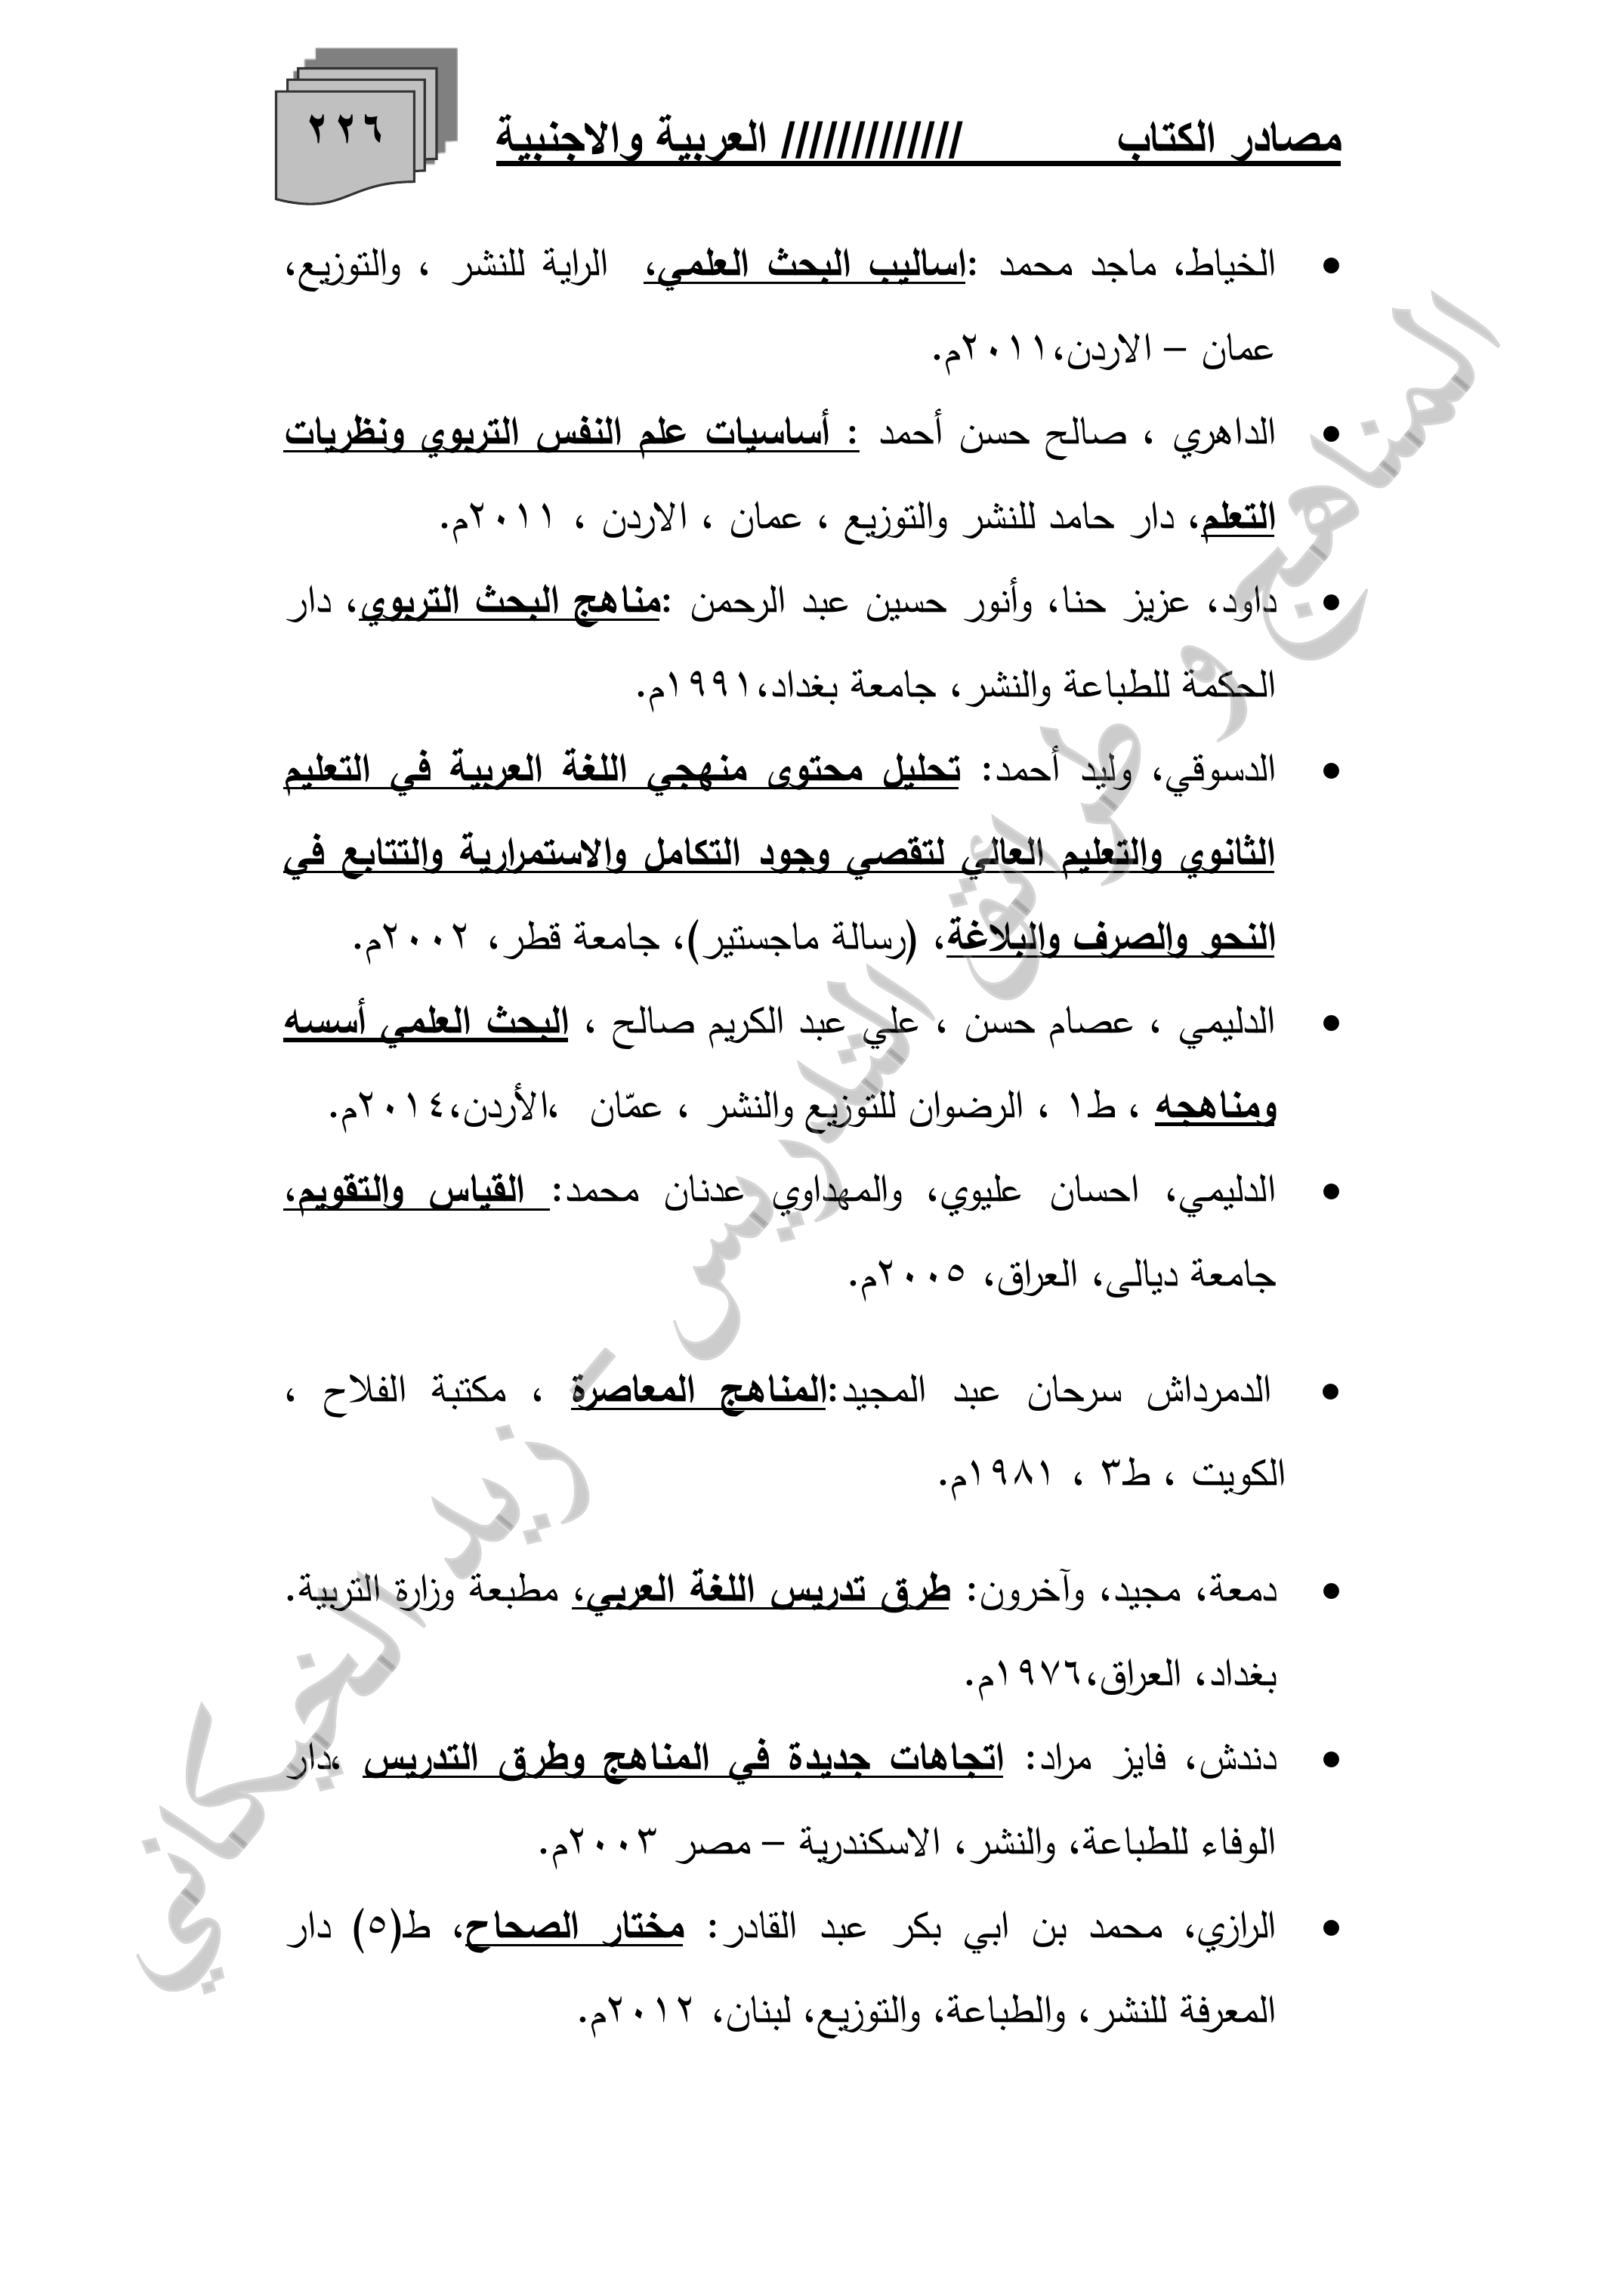 مصادر الكتاب ///////////// العربية والاجنبية
٢٢٦
• الخياط، ماجد محمد :اساليب البحث العلمي، الراية للنشر ، والتوزيع،
عمان – الاردن،٢٠١١م.
• الداهري ، صالح حسن أحمد : أساسيات علم النفس التربوي ونظريات
التعلم، دار حامد للنشر والتوزيع ، عمان ، الاردن ، ٢٠١١م.
• داود، عزيز حنا، وأنور حسين عبد الرحمن :مناهج البحث التربوي، دار
الحكمة للطباعة والنشر، جامعة بغداد،١٩٩١م.
• الدسوقي، وليد أحمد: تحليل محتوى منهجي اللغة العربية في التعليم
الثانوي والتعليم العالي لتقصي وجود التكامل والاستمرارية والتتابع في
النحو والصرف والبلاغة، (رسالة ماجستير)، جامعة قطر، ٢٠٠٢م.
• الدليمي ، عصام حسن ، علي عبد الكريم صالح ، البحث العلمي أسسه
ومناهجه ، ط١ ، الرضوان للتوزيع والنشر ، عمّان ،الأردن،٢٠١٤م.
• الدليمي، احسان عليوي، والمهداوي عدنان محمد: القياس والتقويم،
جامعة ديالى، العراق، ٢٠٠٥م.
• الدمرداش سرحان عبد المجيد:المناهج المعاصرة ، مكتبة الفلاح ،
الكويت ، ط٣ ، ١٩٨١م.
• دمعة، مجيد، وآخرون: طرق تدريس اللغة العربي، مطبعة وزارة التربية.
بغداد، العراق،١٩٧٦م.
• دندش، فايز مراد: اتجاهات جديدة في المناهج وطرق التدريس ،دار
الوفاء للطباعة، والنشر، الاسكندرية – مصر ٢٠٠٣م.
• الرازي، محمد بن ابي بكر عبد القادر: مختار الصحاح، ط(٥) دار
المعرفة للنشر، والطباعة، والتوزيع، لبنان، ٢٠١٢م.
المناهج و طرائق التدريس – زيد الخيكاني